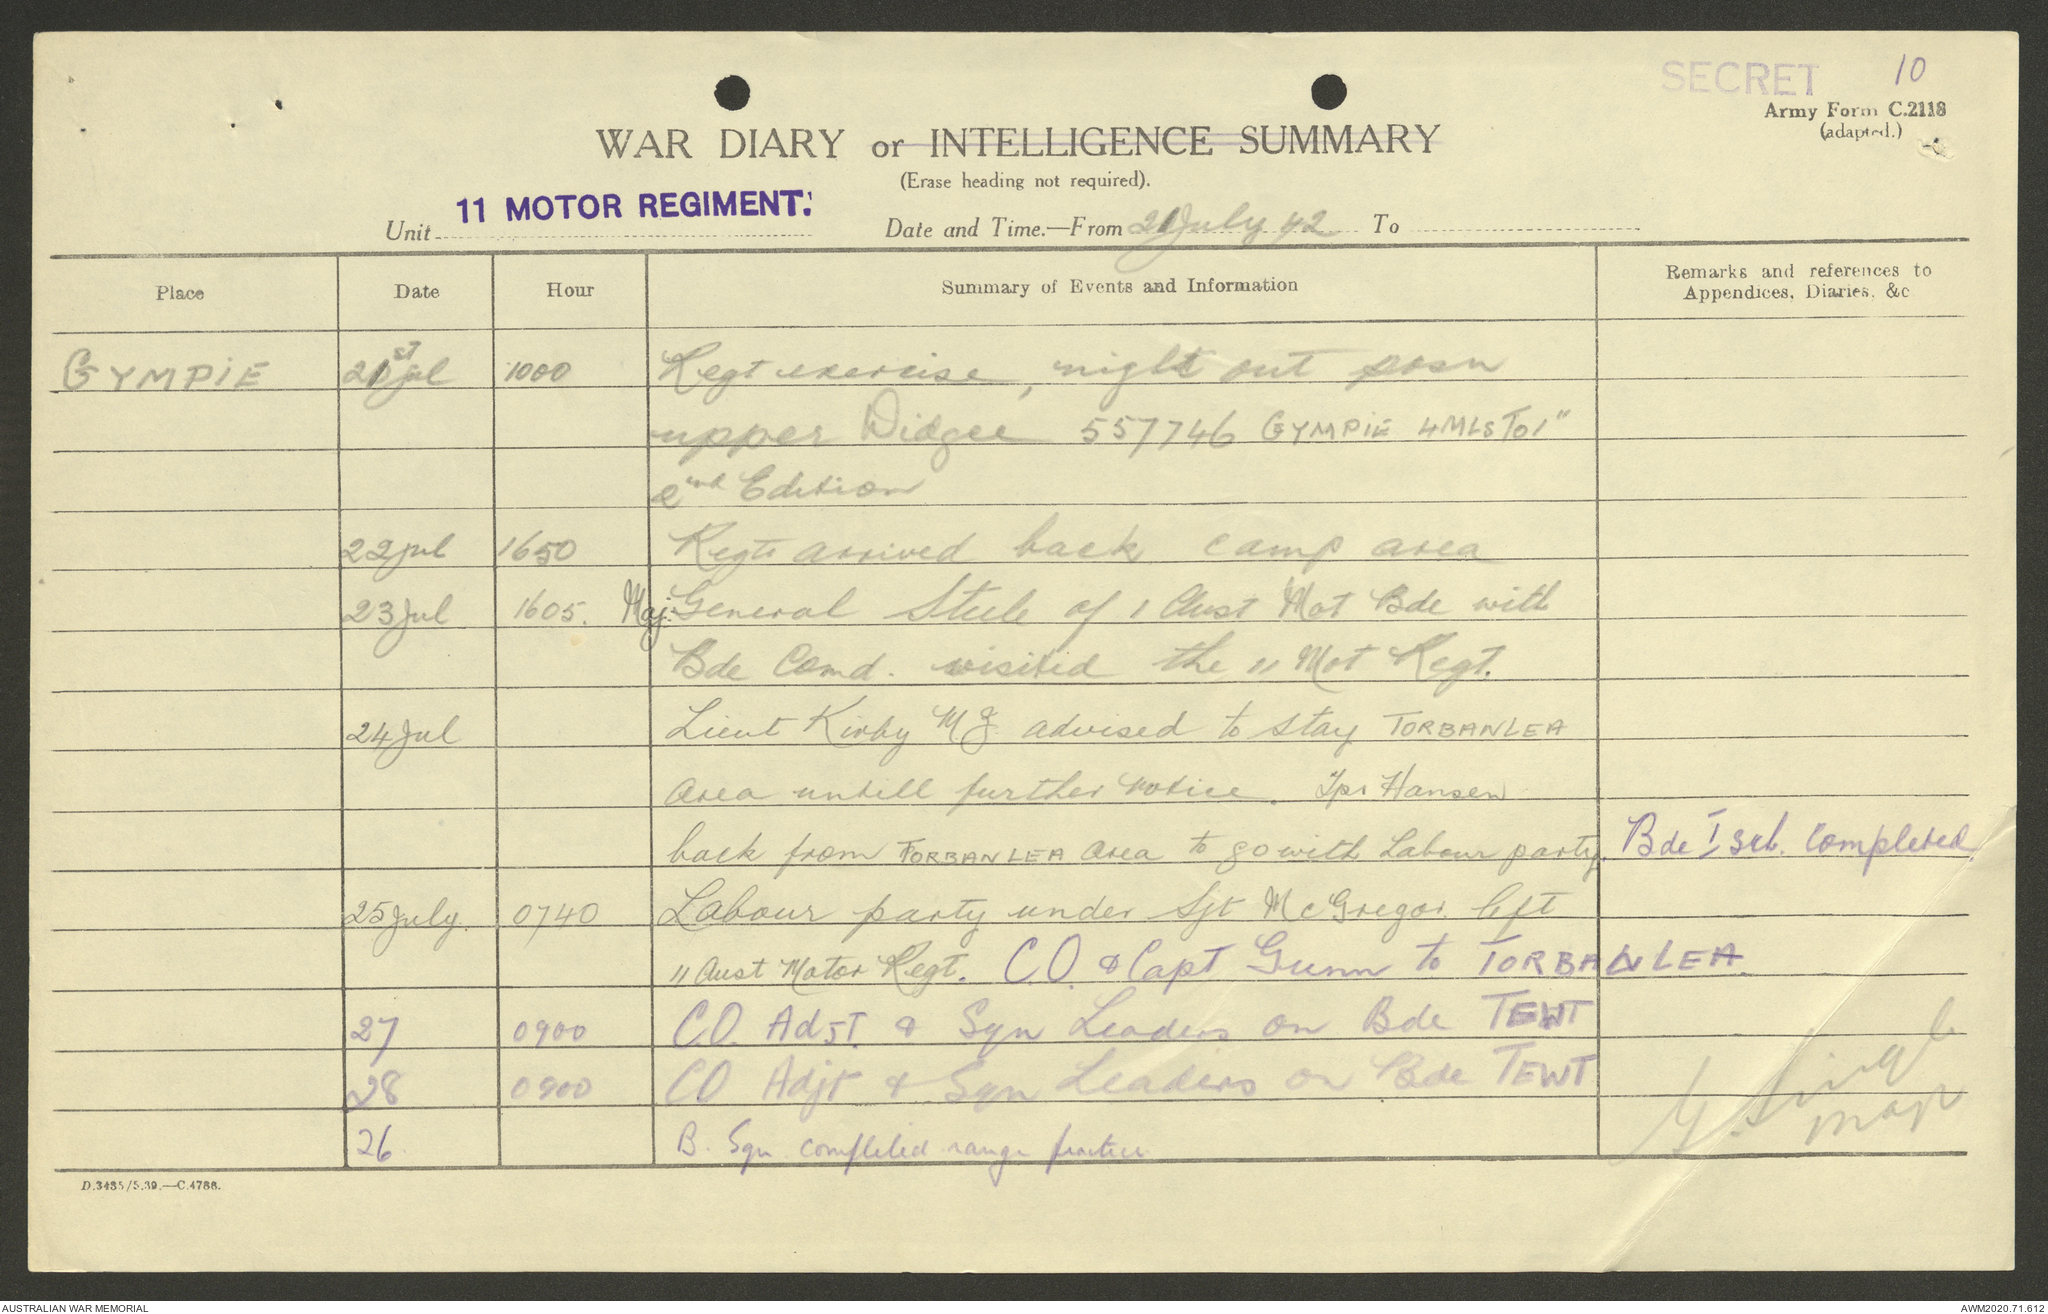 SECRET 10
Army Form C.2118
(adapted.)
WAR DIARY or INTELLIGENCE SUMMARY
(Erase heading not required).
Unit 11 MOTOR REGIMENT. Date and Time.—From 21 July 42 To
Place Date Hour Summary of Events and Information Remarks and references to
Appendices, Diaries, &c
GYMPIE 21st Jul 1000 Regt exercise, night out posn
upper Widgee 557746 GYMPIE 4MLS TO 1"
2nd Edition
22 Jul 1650 Regt arrived back camp area
23 Jul 1605. Maj. General Steele of 1 Aust Mot Bde with
Bde Comd. visited the 11 Mot Regt.
24 Jul Lieut Kirby MJ advised to stay TORBANLEA
area untill further notice. Tpr Hansen
back from TORBANLEA area to go with Labour party. Bde I Sch. Completed.
25 July. 0740 Labour party under Sjt McGregor left
11 Aust Motor Regt. C.O. & Capt Gunn to TORBANLEA.
27 0900 C.O. AdJT. & Sqn Leaders on Bde TEWT
28 0900 CO Adjt & Sqn Leaders on Bde TEWT
26 B. Sqn completed range practice
Maj
D.3435/5.39.—C.4788.
AUSTRALIAN WAR MEMORIAL AWM2020.71.612